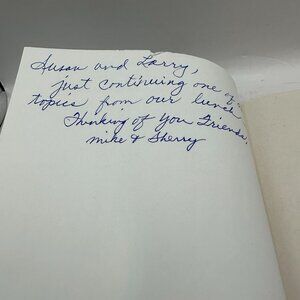 Susan and Larry,
just continuing one of
topics from our lunch
Thinking of You Friends,
mike & Sherry